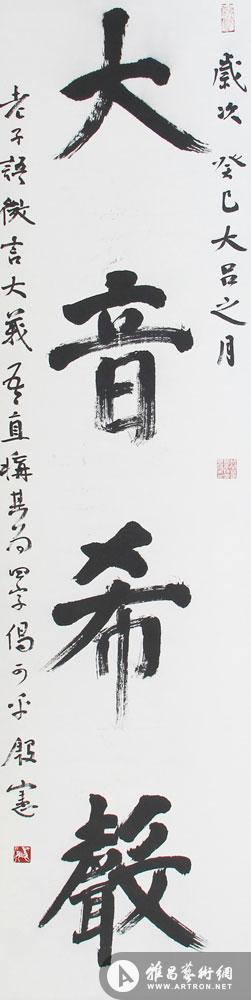 歲次癸巳大呂之月
大音希聲
老子語微言大義吾直稱其為四字偈可乎殷憲
雅昌藝術網
WWW.ARTRON.NET